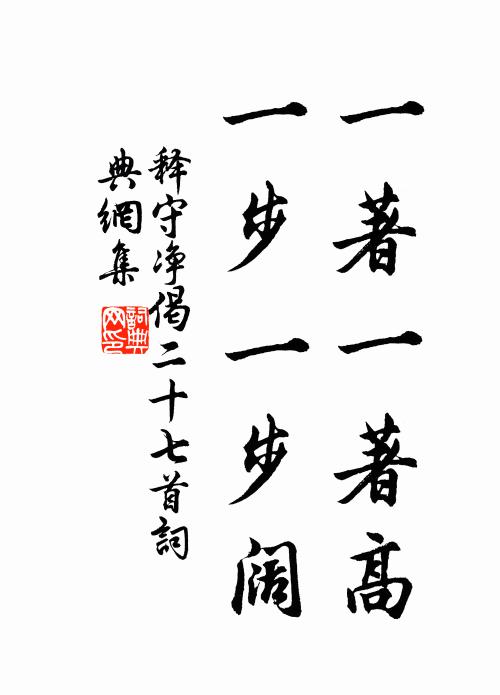 一著一著高
一步一步阔
释守净偈二十七首詞
典網集
詞典
网印